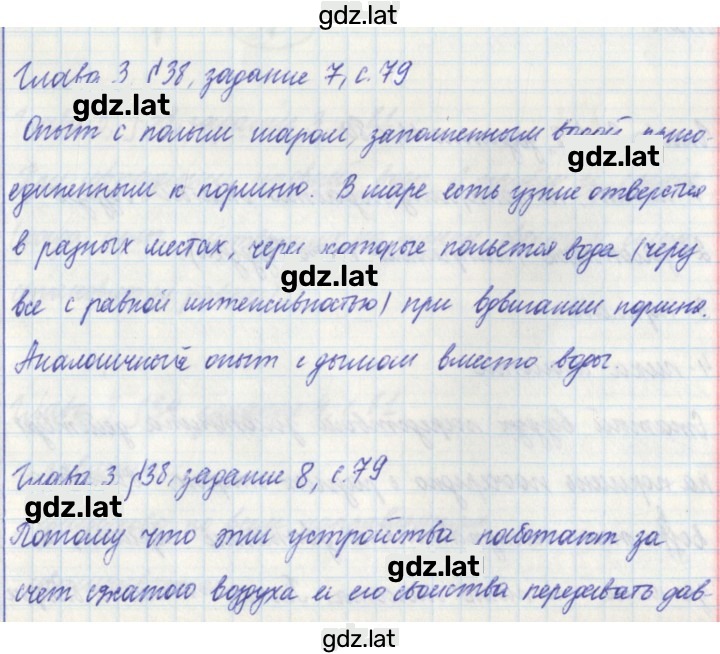 gdz.lat
Глава 3 §38, задание 7, с. 79
gdz.lat
Опыт с полым шаром, заполненным водой, присо-
gdz.lat
единенным к поршню. В шаре есть узкие отверстия
в разных местах, через которые польется вода (через
gdz.lat
все с равной интенсивностью) при вдвигании поршня.
Аналогичный опыт с дымом вместо воды.
Глава 3 §38, задание 8, с. 79
gdz.lat
Потому что эти устройства работают за
gdz.lat
счет сжатого воздуха и его свойства передавать дав-
gdz.lat